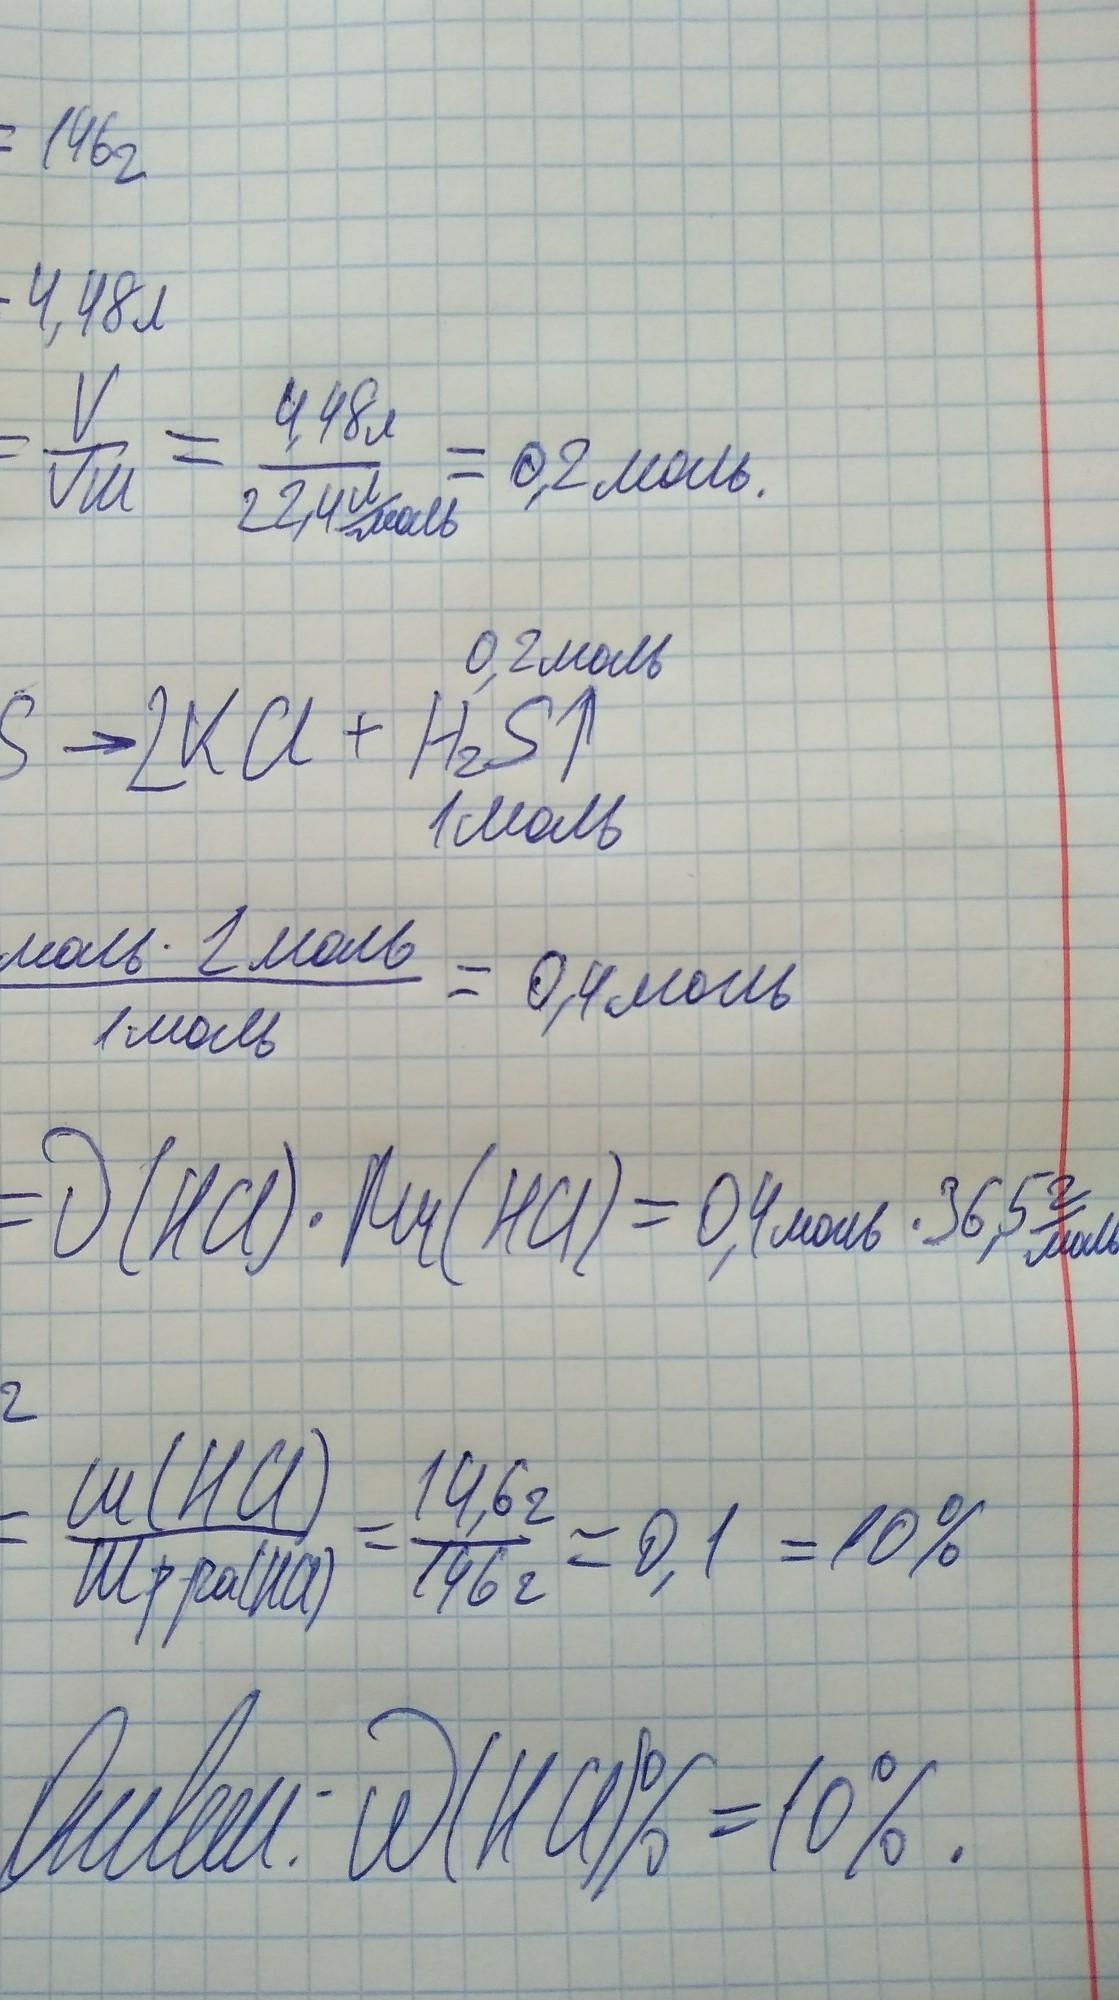 = 146г
- 4,48л
= V/Vm = 4,48л/22,4 л/моль = 0,2 моль.
0,2 моль
S → 2KCl + H₂S↑
1 моль
моль · 2 моль / 1 моль = 0,4 моль
= ν(HCl) · Mr(HCl) = 0,4 моль · 36,5 г/моль
г
= m(HCl)/m р-ра(HCl) = 14,6г/146г = 0,1 = 10%
Ответ: ω(HCl)% = 10%.